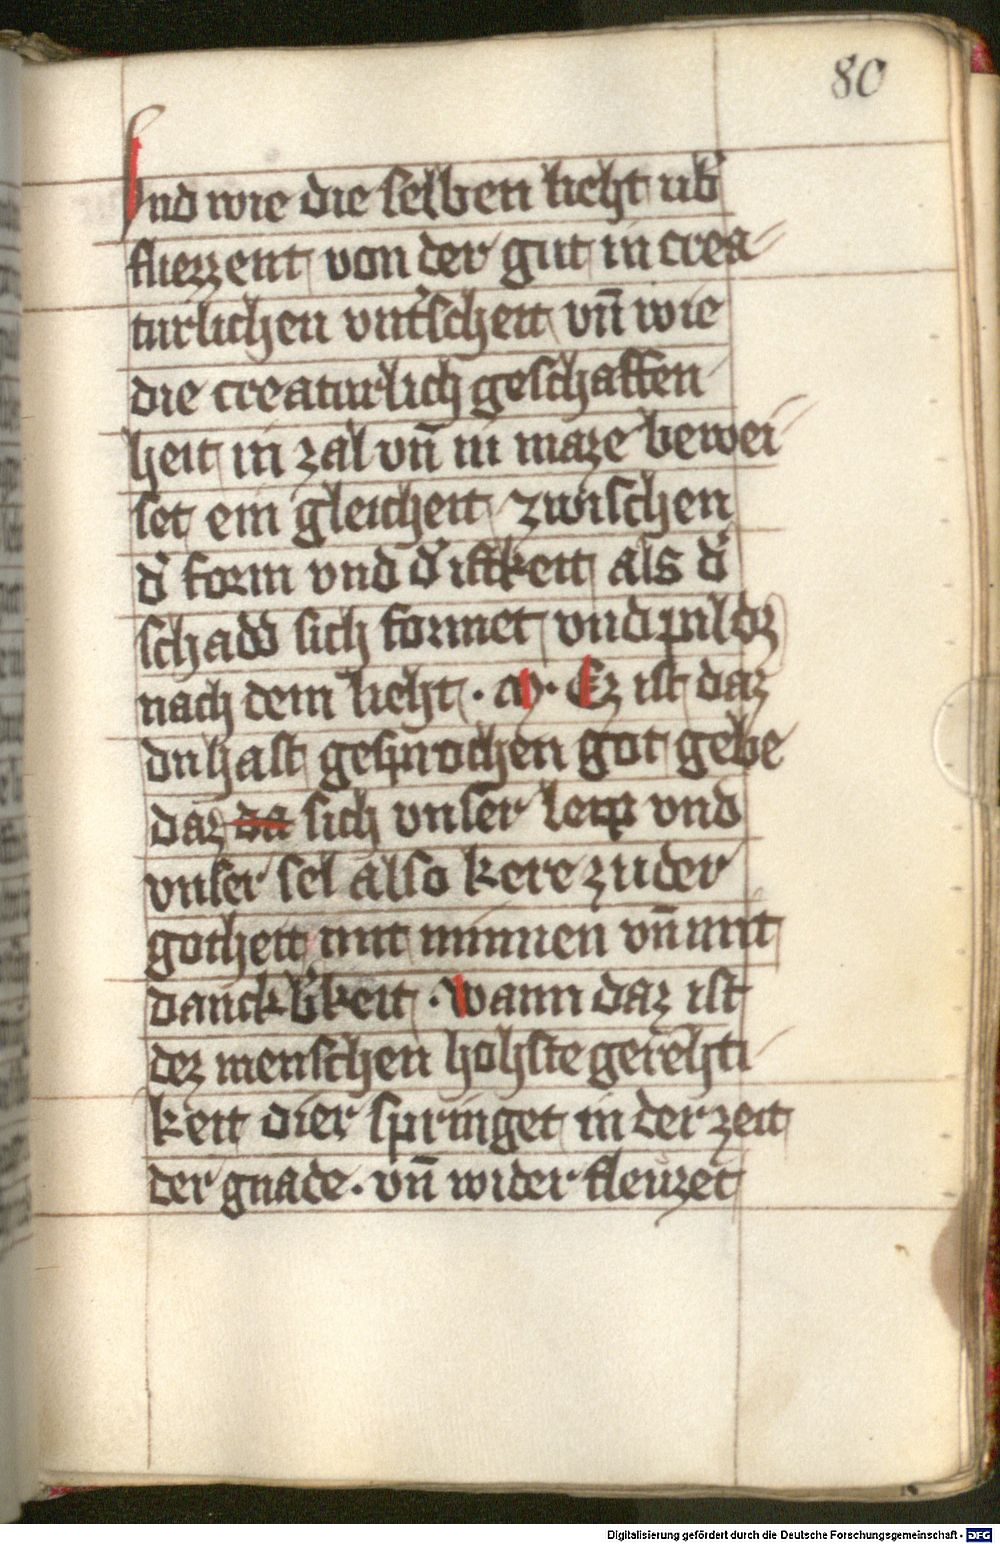 80
Vnd wie die selben licht ub̄
fliezzent von der gut in crea
turlichen vnt̉scheit vn̄ wie
die creaturlich geschaffen
heit in zal vn̄ in maze bewei
set ein gleicheit zwischen
d̉ form vnd d̉ istkeit als d̉
sich formet vnd pildz
nach dem licht . M . Ez ist daz
du hast gesprochen got gebe
daz da sich vnser leip vnd
vnser sel also kere zu der
gotheit mit minnen vn̄ mit
danckb̉keit . Wann daz ist
dez menschen hohste gerehti
keit die er springet in der zeit
der gnade . vn̄ wider fleuzet
Digitalisierung gefördert durch die Deutsche Forschungsgemeinschaft - DFG